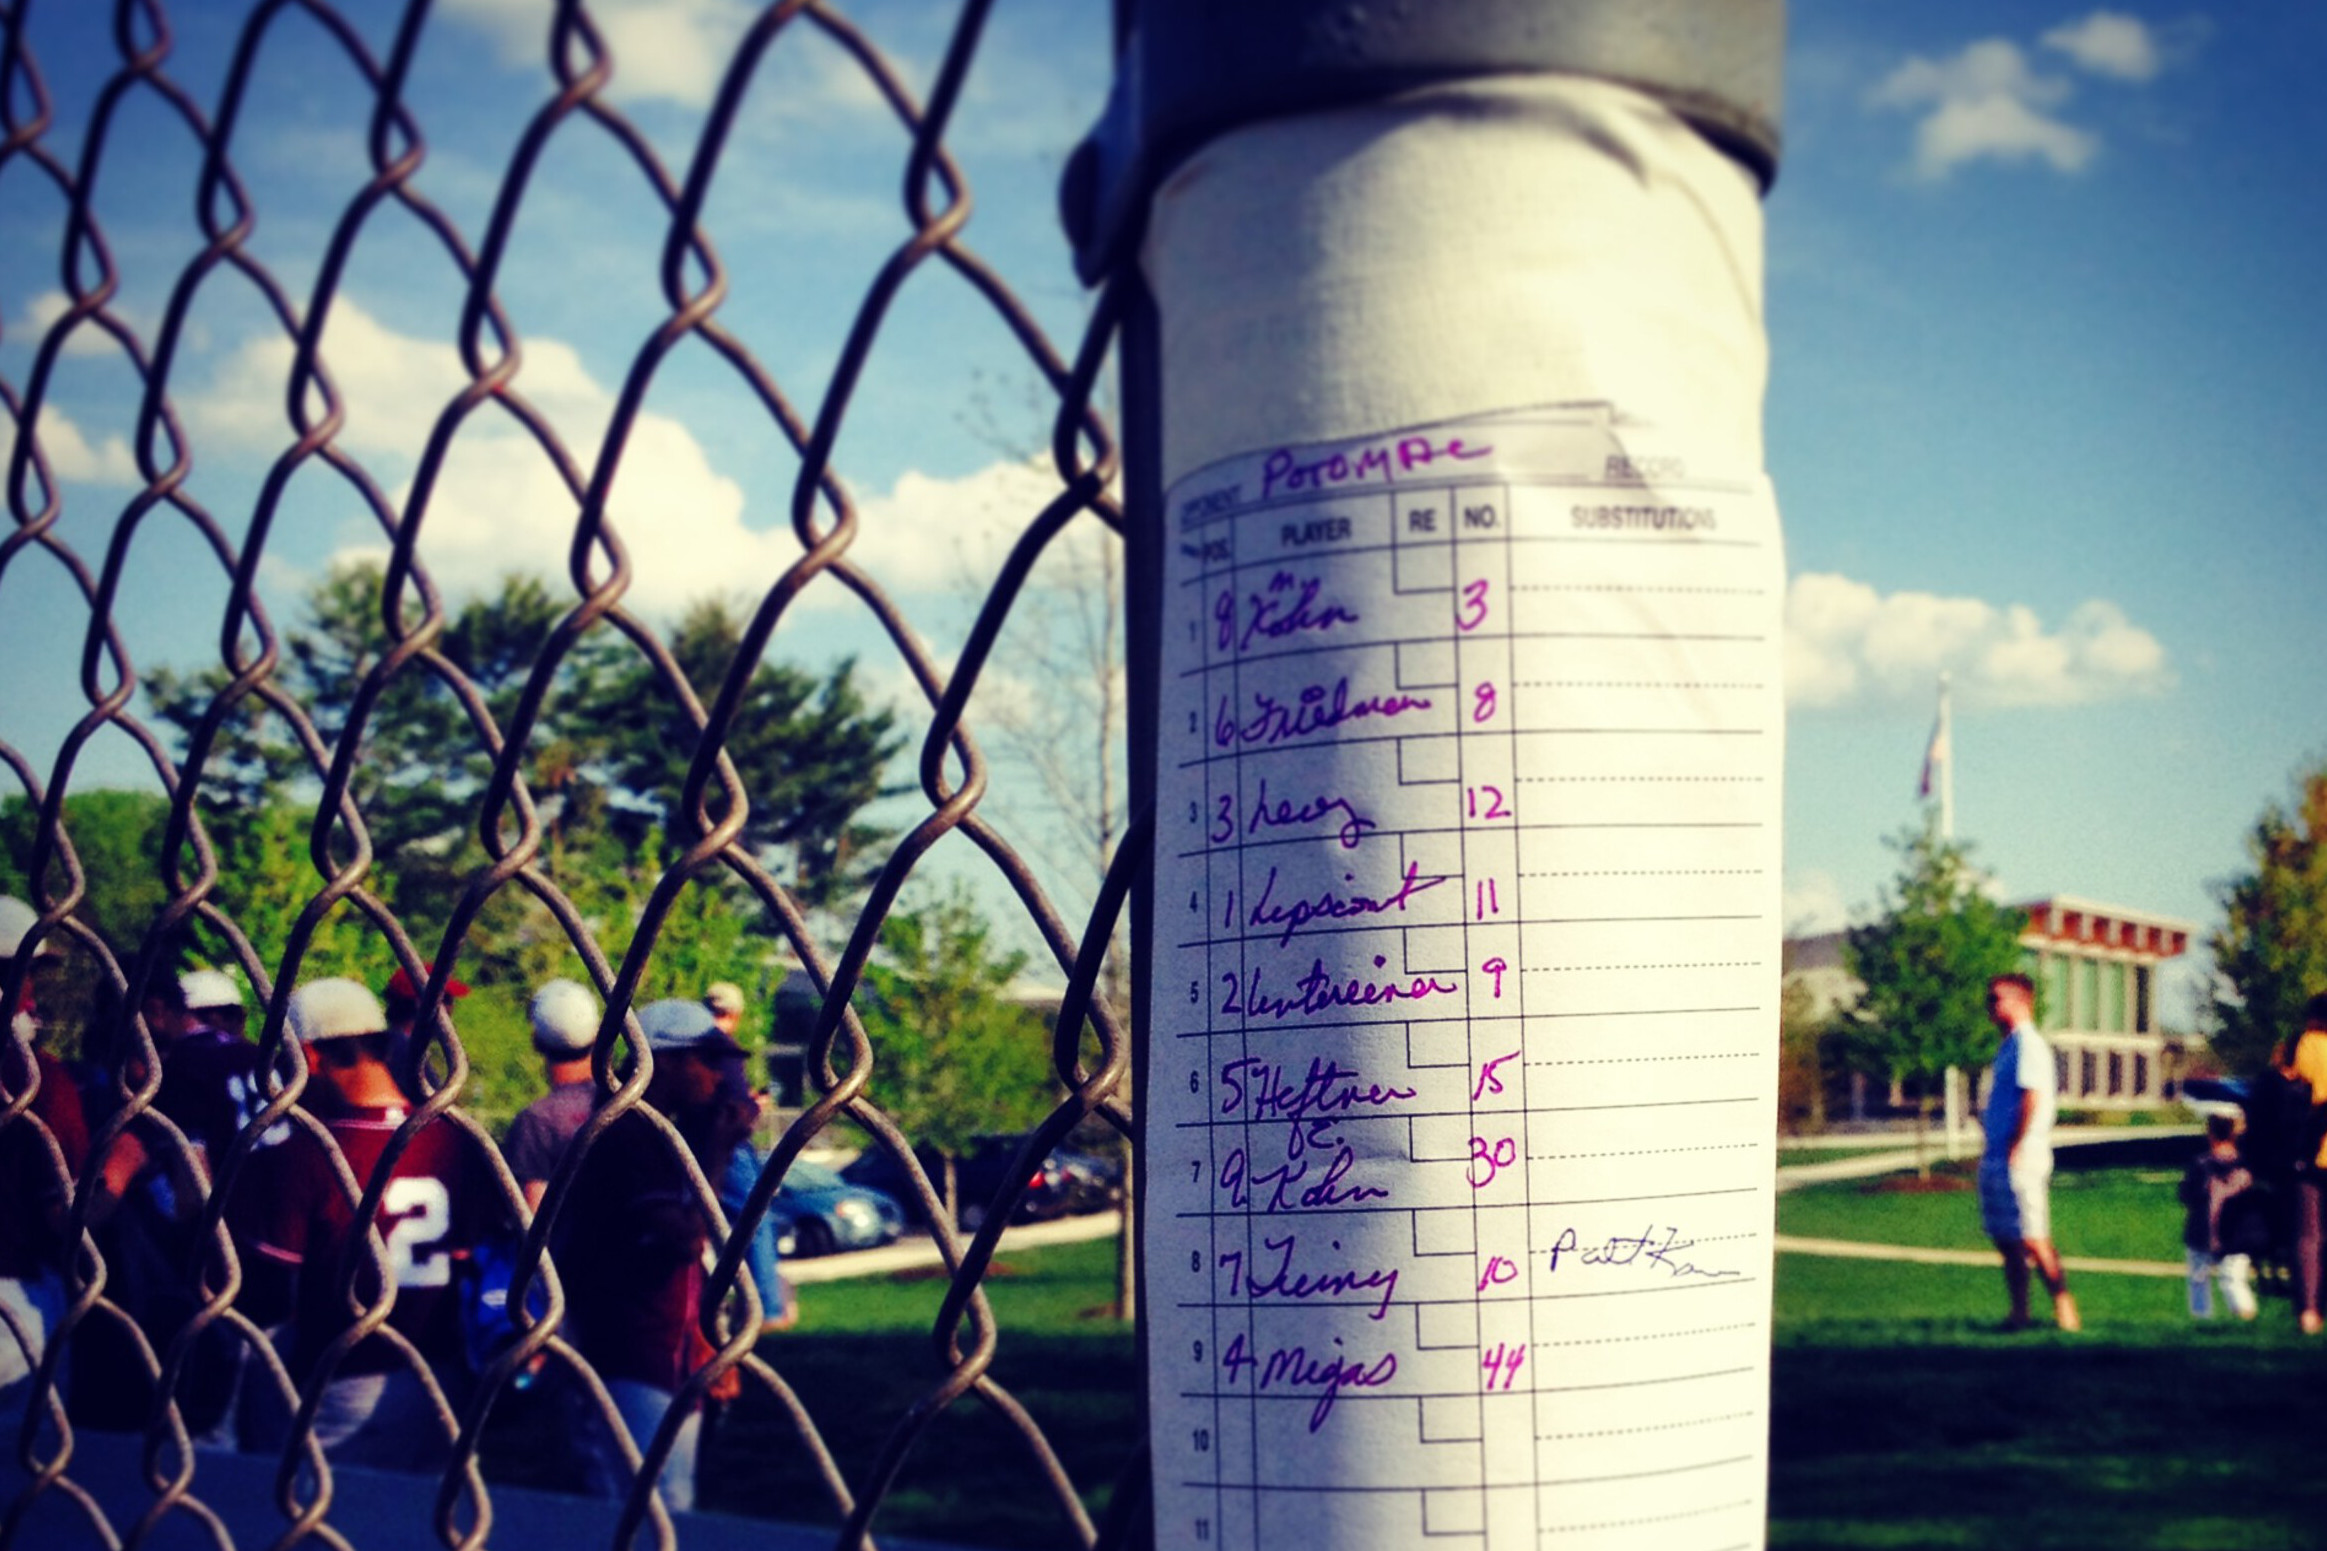 Potomac
OPPONENT RECORD
POS. PLAYER RE NO. SUBSTITUTIONS
1 8 M Kohn 3
2 6 Friedman 8
3 3 Levy 12
4 1 11
5 2 Untereiner 9
6 5 Heftner 15
7 9 E. Kohn 30
8 7 10
9 4 Migas 44
10
11
2